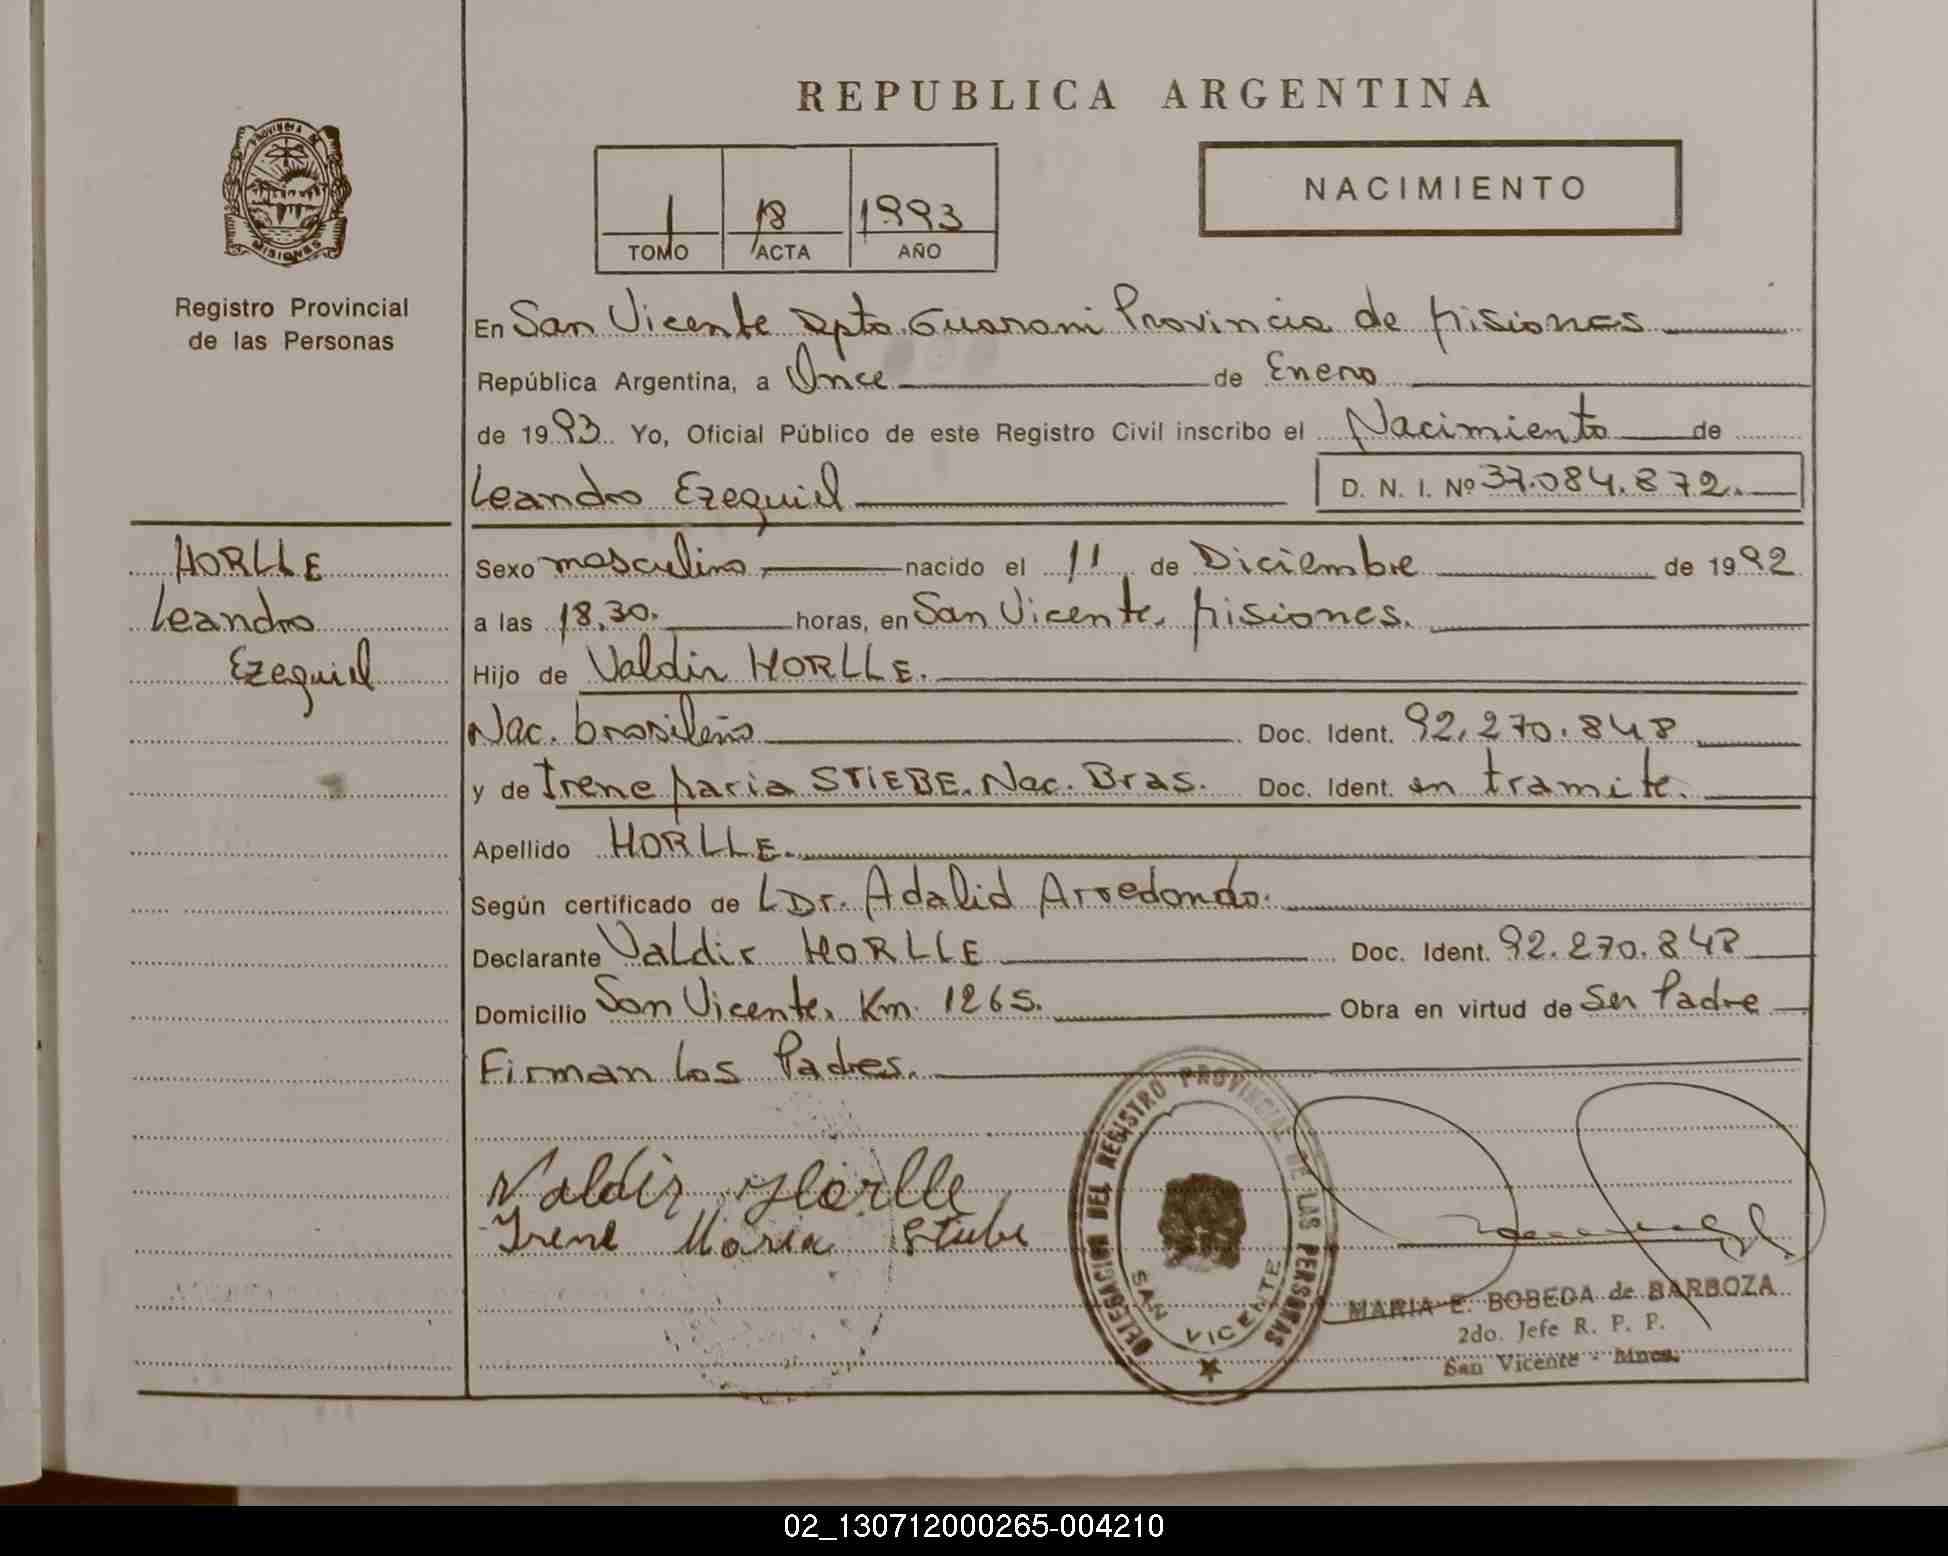 REPUBLICA ARGENTINA
PROVINCIA DE MISIONES
Registro Provincial
de las Personas
1 18 1993
TOMO ACTA AÑO
NACIMIENTO
En San Vicente Dpto. Guarani Provincia de Misiones
República Argentina, a Once de Enero
de 1993. Yo, Oficial Público de este Registro Civil inscribo el Nacimiento de
Leandro Ezequiel D. N. I. Nº 37.084.872.
HORLLE
Leandro
Ezequiel
Sexo masculino nacido el 11 de Diciembre de 1992
a las 18.30. horas, en San Vicente, Misiones.
Hijo de Valdir HORLLE.
Nac. brasileño Doc. Ident. 92.270.848
y de Irene Maria STIEBE. Nac. Bras. Doc. Ident. en tramite.
Apellido HORLLE.
Según certificado de LDr. Adalid Arredondo.
Declarante Valdir HORLLE Doc. Ident. 92.270.848
Domicilio San Vicente, Km. 1265. Obra en virtud de Ser Padre
Firman los Padres.
Valdir Horlle
Irene Maria Stube
DELEGACION DEL REGISTRO PROVINCIAL DE LAS PERSONAS
SAN VICENTE
MARIA E. BOBEDA de BARBOZA
2do. Jefe R. P. P.
San Vicente - Mnes.
02_130712000265-004210